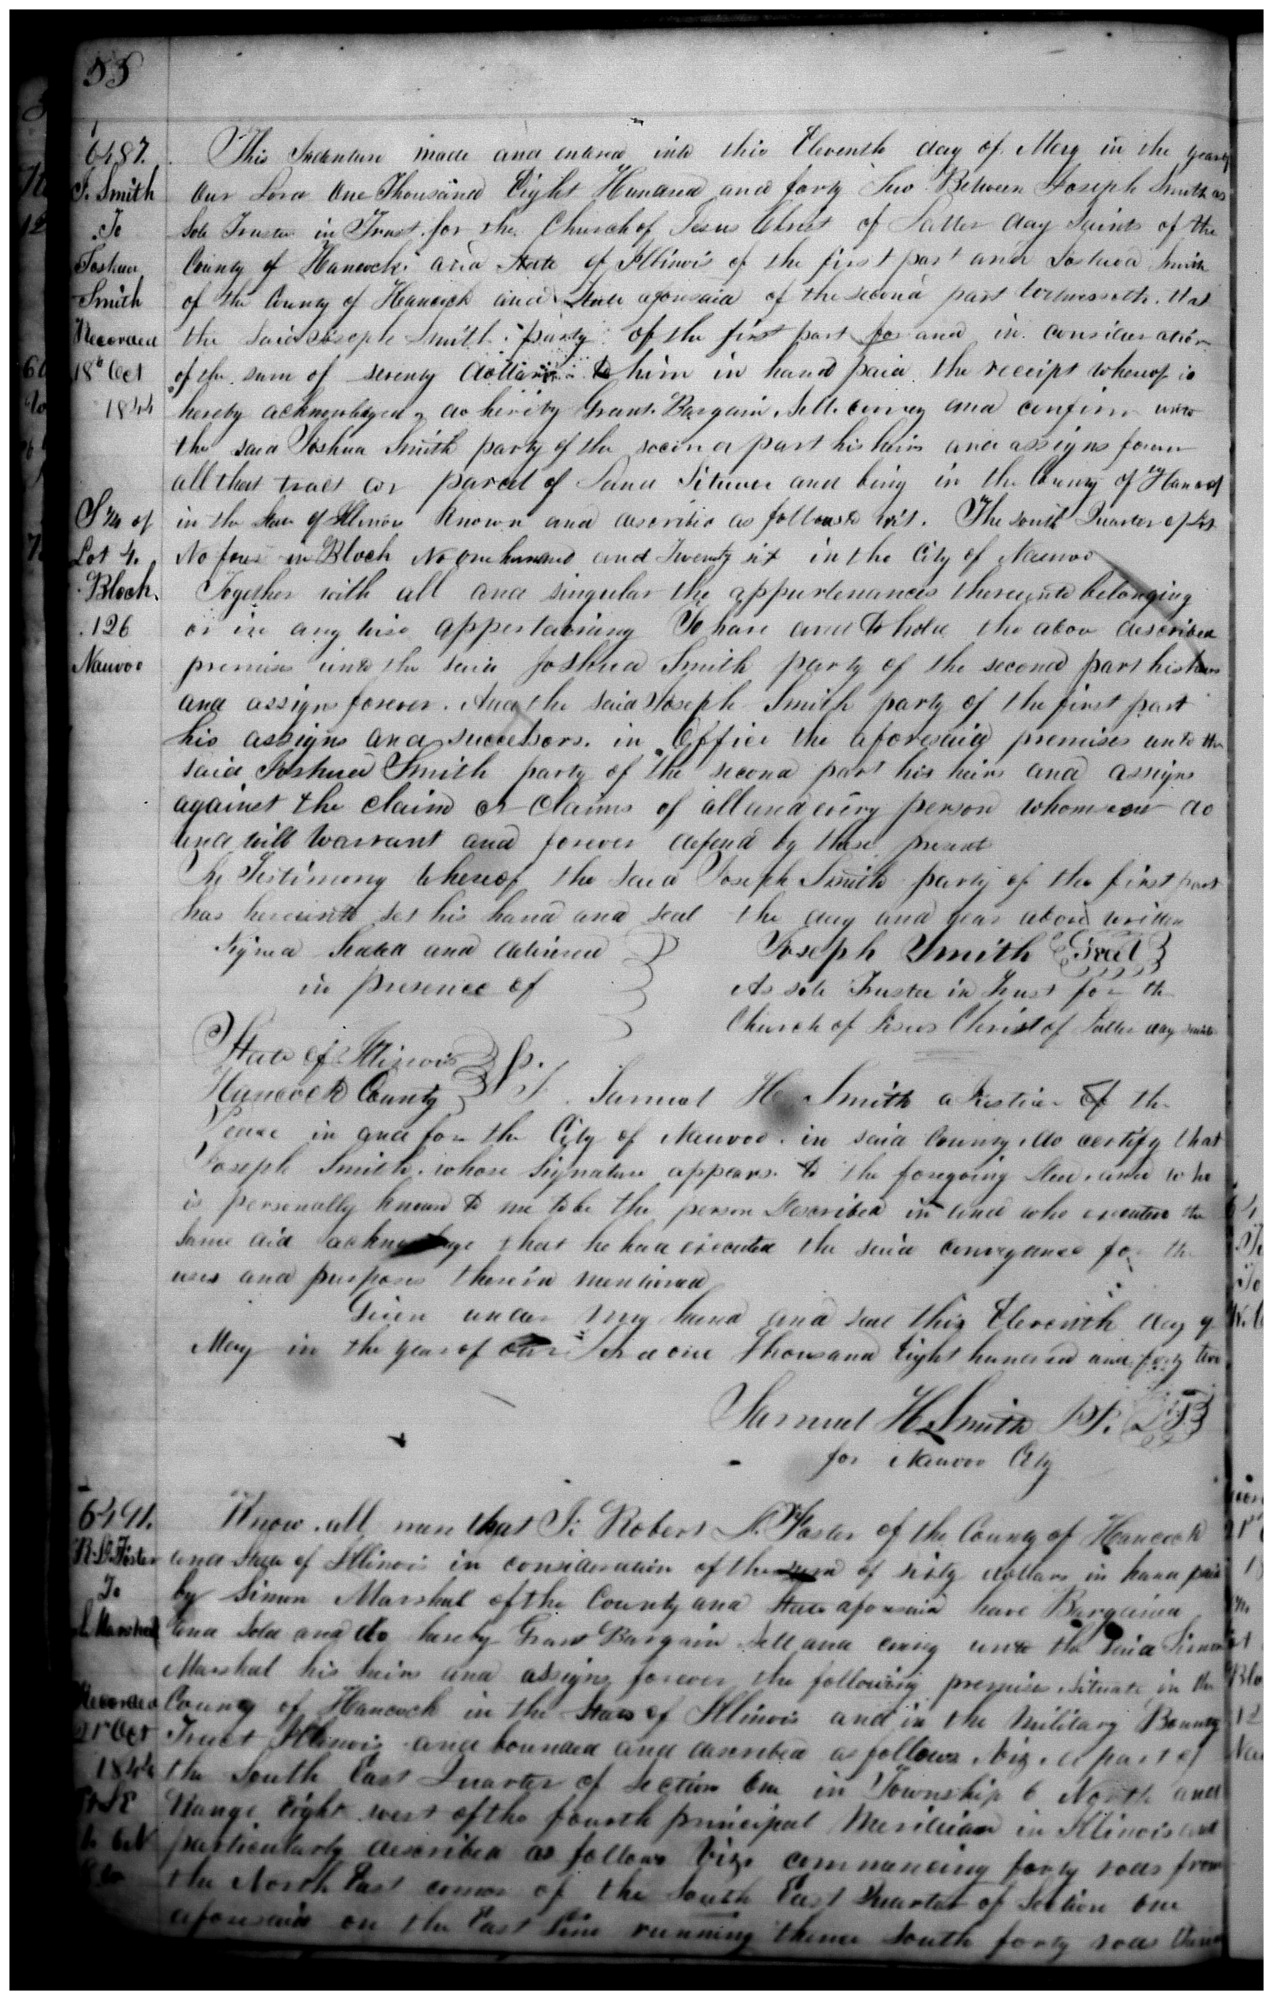 55
6487.
J. Smith
To
Joshua
Smith
Recorded
18th Oct
1844
S 1/4 of
Lot 4.
Block.
126
Nauvoo
This Indenture made and entered into this Eleventh day of May in the year of
our Lord One Thousand Eight Hundred and forty Two Between Joseph Smith as
Sole Trustee in Trust for the Church of Jesus Christ of Latter day Saints of the
County of Hancock and State of Illinois of the first part and Joshua Smith
of the County of Hancock and State aforesaid of the second part Witnesseth. that
the said Joseph Smith party of the first part for and in consideration
of the sum of seventy dollars to him in hand paid the receipt whereof is
hereby acknowledged do hereby Grant. Bargain. Sell. convey and confirm unto
the said Joshua Smith party of the second part his heirs and assigns forever
all that tract or parcel of Land Situate and being in the County of Hancock
in the State of Illinois Known and described as follows to wit. The south Quarter of Lot
No four in Block No one hundred and Twenty six in the City of Nauvoo
Together with all and singular the appurtenances thereunto belonging
or in any wise appertaining To have and to hold the above described
premises unto the said Joshua Smith party of the second part his heirs
and assigns forever. And the said Joseph Smith party of the first part
his assigns and successors. in Office the aforesaid premises unto the
said Joshua Smith party of the second part his heirs and assigns
against the claim or claims of all and every person whomsoever do
and will Warrant and forever defend by these presents
In Testimony Whereof the said Joseph Smith party of the first part
has hereunto set his hand and seal the day and year above written
Signed Sealed and delivered Joseph Smith Seal
in presence of As sole Trustee in Trust for the
Church of Jesus Christ of Latter day saints
State of Illinois
Hancock County Ss. I. Samuel H. Smith a Justice of the
Peace in and for the City of Nauvoo. in said County. do certify that
Joseph Smith. whose signature appears to the foregoing Deed. and who
is personally known to me to be the person Described in and who executed the
same did acknowledge that he had executed the said conveyance for the
uses and purposes therein mentioned
Given under my hand and seal this Eleventh day of
May in the year of our Lord one thousand Eight hundred and forty two
Samuel H. Smith J.P.
for Nauvoo City
6491.
To
S Marshal
Recorded
21st Oct
1844
Know all men that I. Robert D. Foster of the County of Hancock
and State of Illinois in consideration of the sum of sixty dollars in hand paid
by Simon Marshal of the County and State aforesaid have Bargained
and Sold and do hereby Grant Bargain Sell and convey unto the said Simon
Marshal his heirs and assigns forever the following premises situate in the
County of Hancock in the State of Illinois and in the Military Bounty
Tract Illinois and bounded and described as follows Viz. a part of
the South East Quarter of Section One in Township 6 North and
Range Eight west of the fourth principal Meridian in Illinois and
particularly described as follows Viz. commencing forty rods from
the North East corner of the South East Quarter of Section one
aforesaid on the East line running thence South forty rods thence